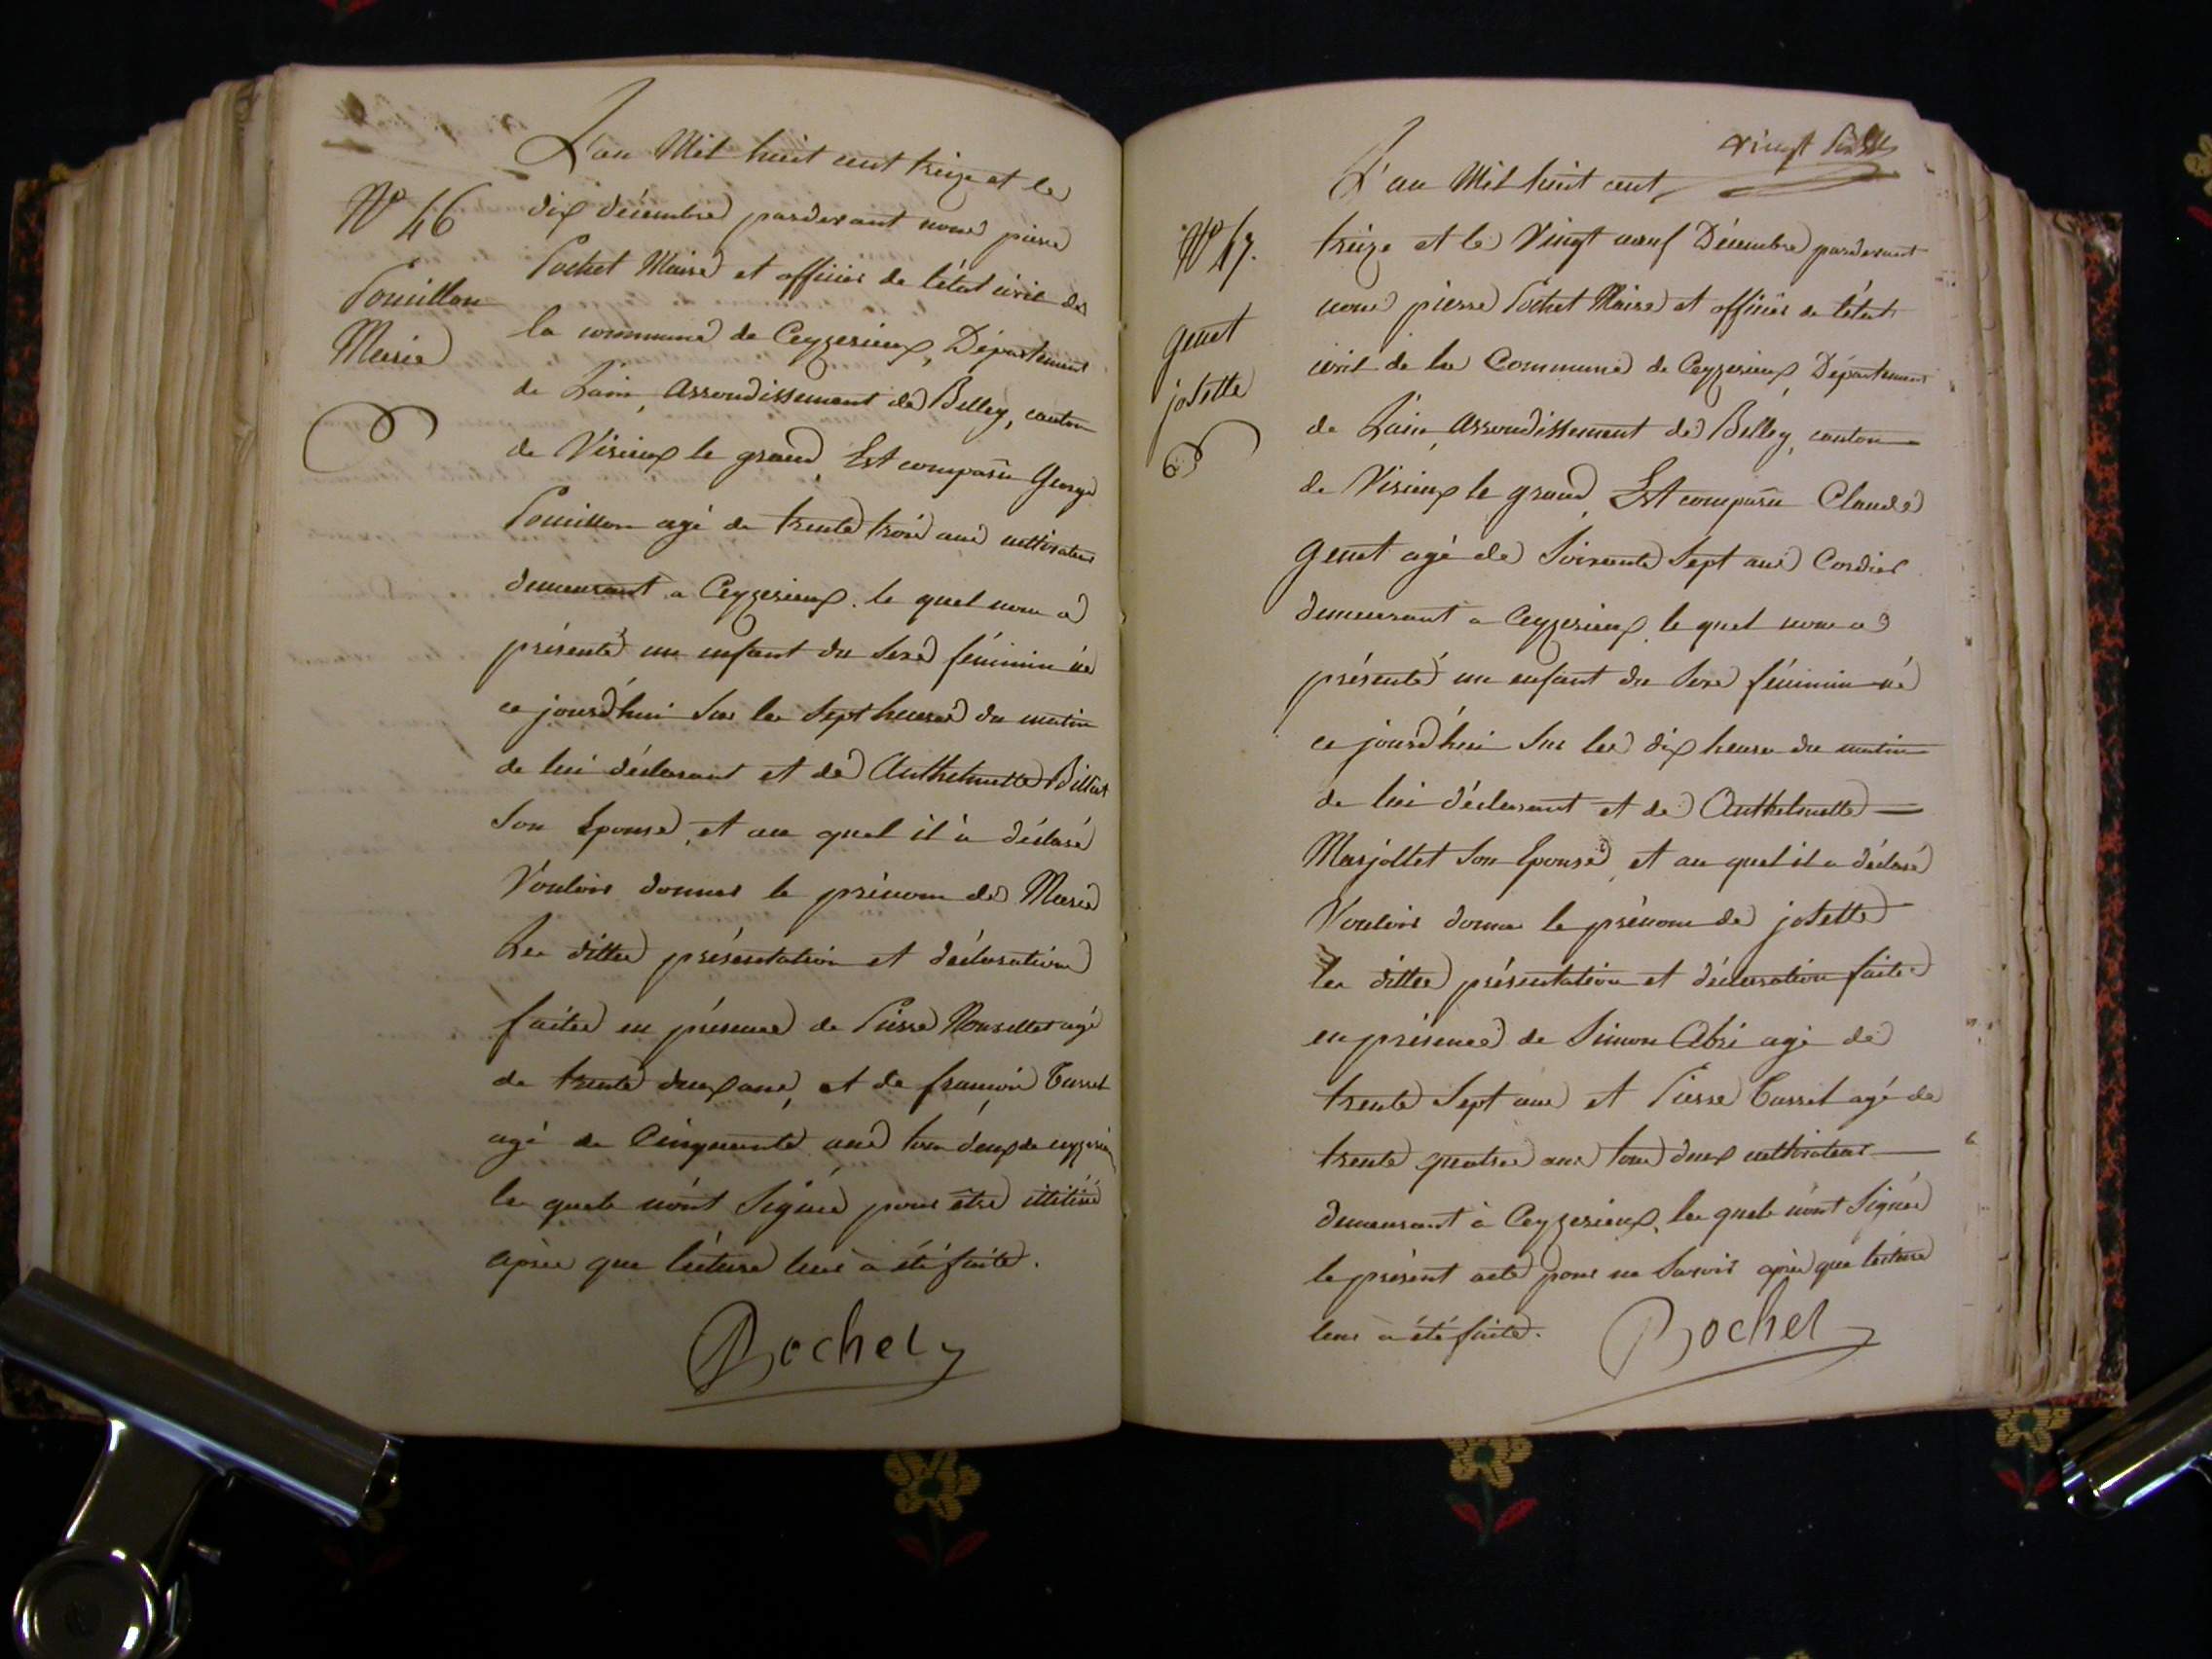 L'an Mil huit cent treize et le
N° 46
dix décembre pardevant nous pierre
Pochet Maire et officier de l'état civil de
Pouillon
Marie
la commune de Ceyzerieux, Département
de Lain, Arrondissement de Belley, canton
de Virieux le grand, Est comparu George
Pouillon agé de trente trois ans cultivateur
demeurant a Ceyzerieux. le quel nous a
présenté un enfant du sexe féminin né
ce jourd'hui sur les sept heures du matin
de lui déclarant et de Anthelmette Billiet
son Epouse, et au quel il à déclaré
Vouloir donner le prénom de Marie
Les dittes présentation et déclaration
faites en présence de Pierre agé
de trente deux ans, et de françois Carret
agé de Cinquante ans tous deux de ceyzerieu
les quels n'ont Signés pour être illitirés
après que lécture leur à été faite.
Pochet
vingt
L'an Mil huit cent
N° 47.
treize et le Vingt neuf Décembre pardevant
nous pierre Pochet Maire et officier de l'état
genet
josette
civil de la Commune de Ceyzerieux, Département
de Lain, Arrondissement de Belley, canton
de Virieux le grand, Est comparu Claude
genet agé de Soixante Sept ans Cordier
demeurant a Ceyzerieux, le quel nous a
présenté un enfant du Sexe féminin né
ce jourd'hui Sur les dix heures du matin
de lui déclarant et de Anthelmette
Marjollet Son Epouse, et au quel il a déclaré
Vouloir donner le prénom de josette
les dittes présentation et déclaration faites
en présence de Simon Abri agé de
trente Sept ans et Pierre Carret agé de
trente quatre ans tous deux cultivateurs
demeurant à Ceyzerieux, les quels n'ont Signés
le présent acte pour ne Savoir après que lécture
leur à été faite.
Pochet